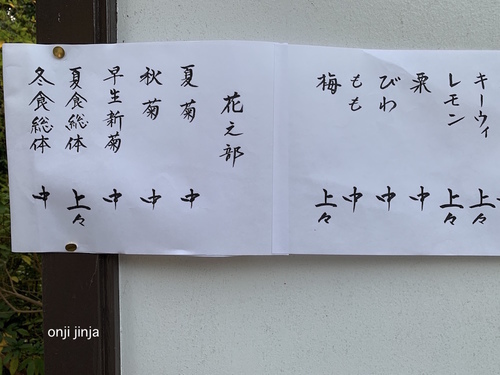 キーウィ 上々
レモン 上々
栗 中
びわ 中
もも 中
梅 上々
花之部
夏菊 中
秋菊 中
早生新菊 中
夏食総体 上々
冬食総体 中
onji jinja